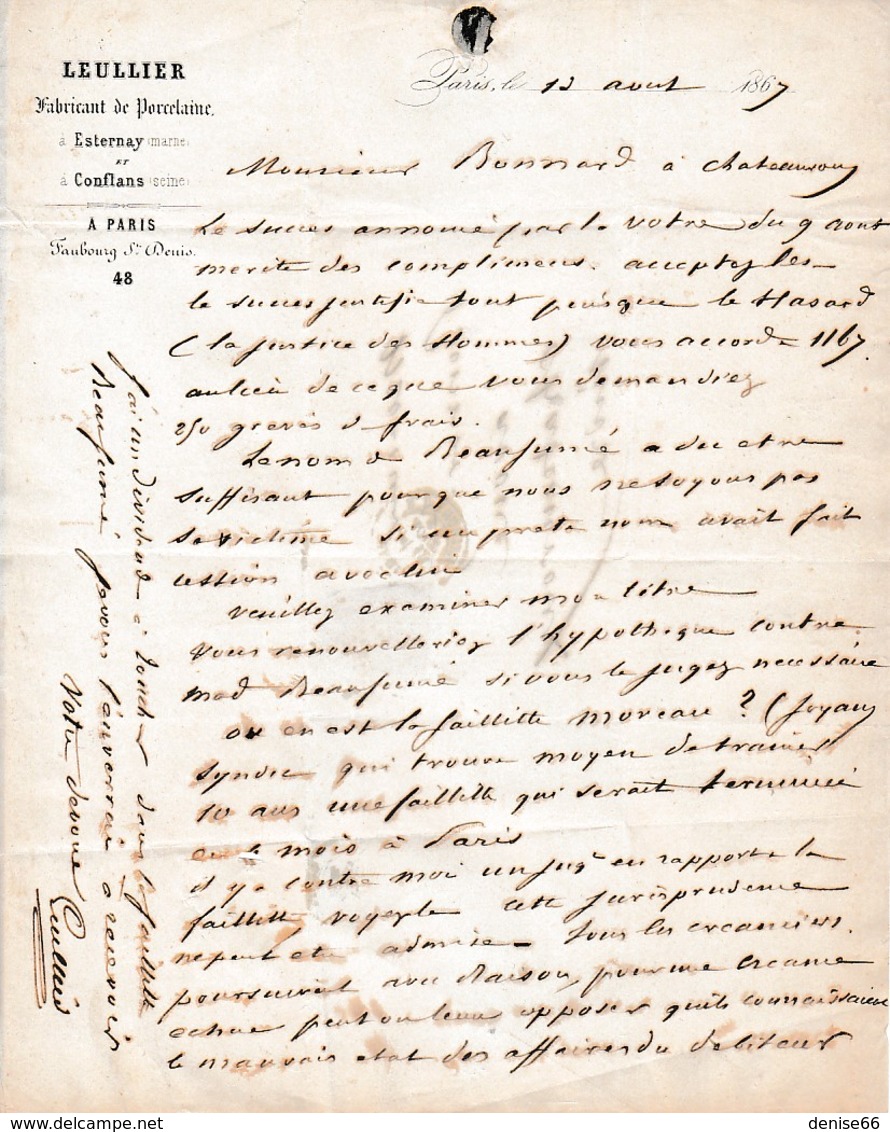 LEULLIER
Fabricant de Porcelaine,
à Esternay (marne)
ET
à Conflans (seine)
A PARIS
Faubourg St. Denis.
48
Paris, le 12 aout 1867
Monsieur Bonnard a chateauroux
Le succes annoncé par la votre du 9 aout
merite des complimens. acceptez les
le succes justifie tout puisque le Hasard
(la justice des Hommes) vous accorde 1167
aulieu de ceque vous demandiez
250 grevés d frais.
Le nom de Beaufumé a du etre
suffisant pourque nous ne soyons pas
sa victime si un prete nom avait fait
cession avec lui
veuillez examiner mon titre
vous renouvelleriez l'hypotheque contre
mad Beaufumé si vous le jugez necessaire
ou en est la faillitte moreau ? (Joyaux
syndic qui trouve moyen de trainer
10 ans une faillitte qui serait terminée
en 6 mois à Paris
il y a contre moi un jugt en rapport a la
faillitte, voyez le cette jurisprudence
ne peut etre admise – tous les creanciers
poursuivent avec Raison, pour une creance
echue peut on leur opposer qu'ils connaissaient
le mauvais etat des affaires du debiteur
j'ai un dividend à toucher dans la faillitte
Beaufumé je vous l'enverrai a recevoir
Votre devoué Leullier
denise66